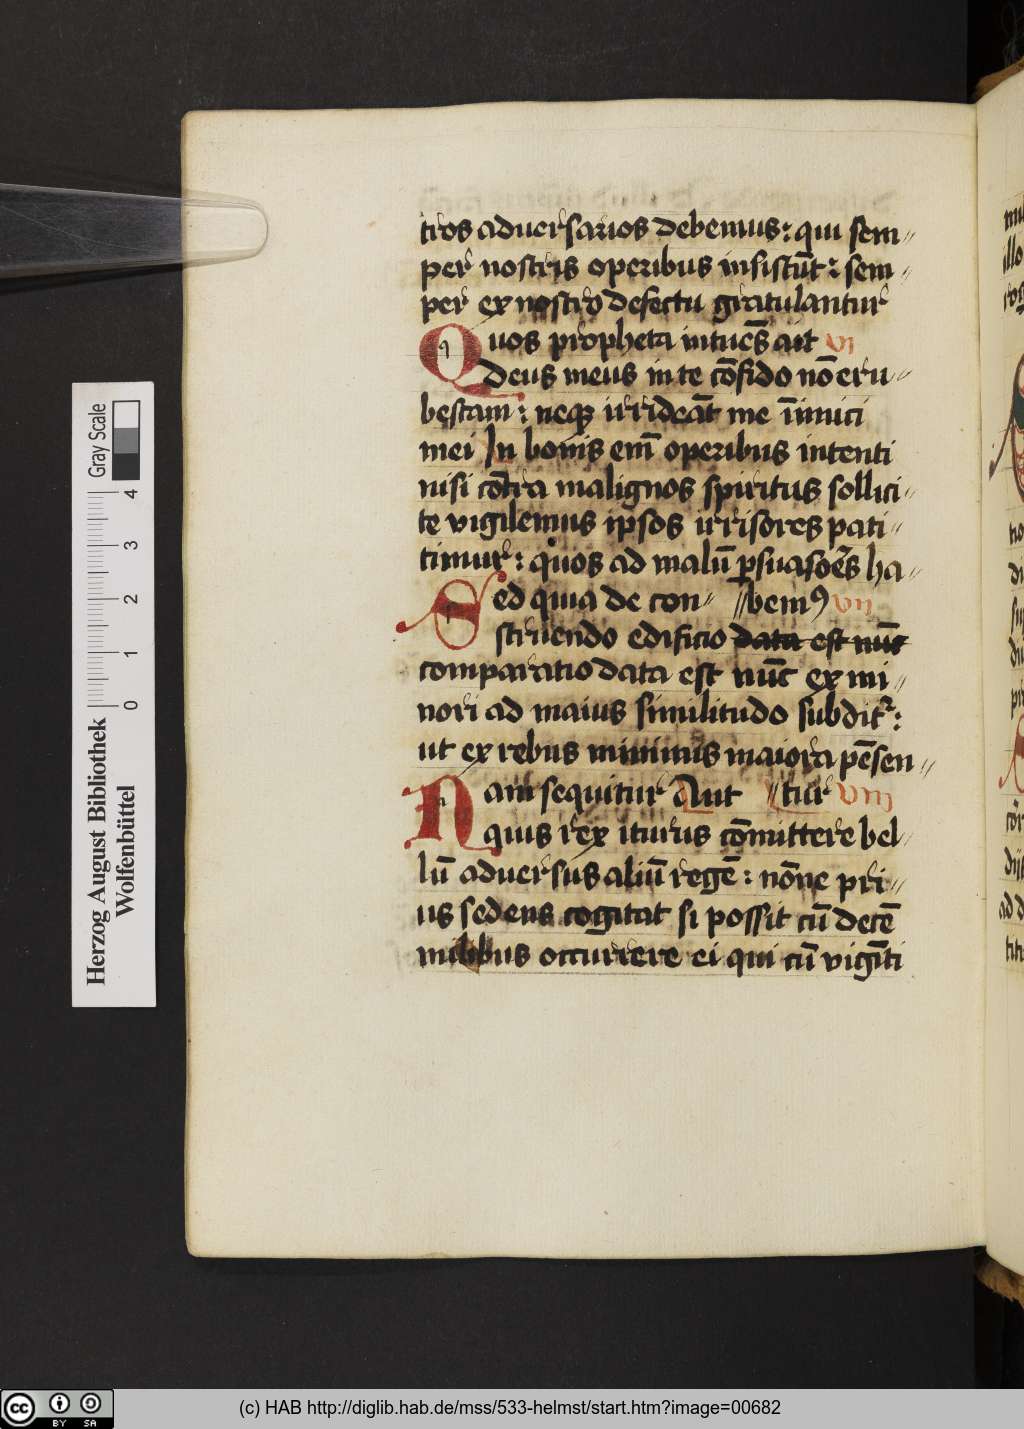 tros aduersarios debemus: qui sem〃
per nostris operibus insistūt: sem〃
per ex nostro defectu gratulantur
Quos propheta intuēs ait VI
deus meus in te cōfido nō eru〃
bescam: neqꝫ irrideāt me īimici
mei In bonis eni̅ operibus intenti
nisi cōtra malignos spiritus sollici〃
te vigilemus ipsos irrisores pati〃
timur: quos ad malū ꝑsuasōes ha〃
Sed quia de con〃 〃bemꝰ VII
struendo edificio data est nūc
comparatio data est nūc ex mi〃
nori ad maius similitudo subditᷣ:
ut ex rebus minimis maiora pēsen〃
Nam sequitur Aut 〃tur VIII
quis rex iturus cōmittere bel〃
lū aduersus aliū regē: nōne pri〃
us sedens cogitat si possit cū decē
milibus occurrere ei qui cū vigīti
Herzog August Bibliothek
Wolfenbüttel
Gray Scale
0 1 2 3 4
cc BY SA
(c) HAB http://diglib.hab.de/mss/533-helmst/start.htm?image=00682